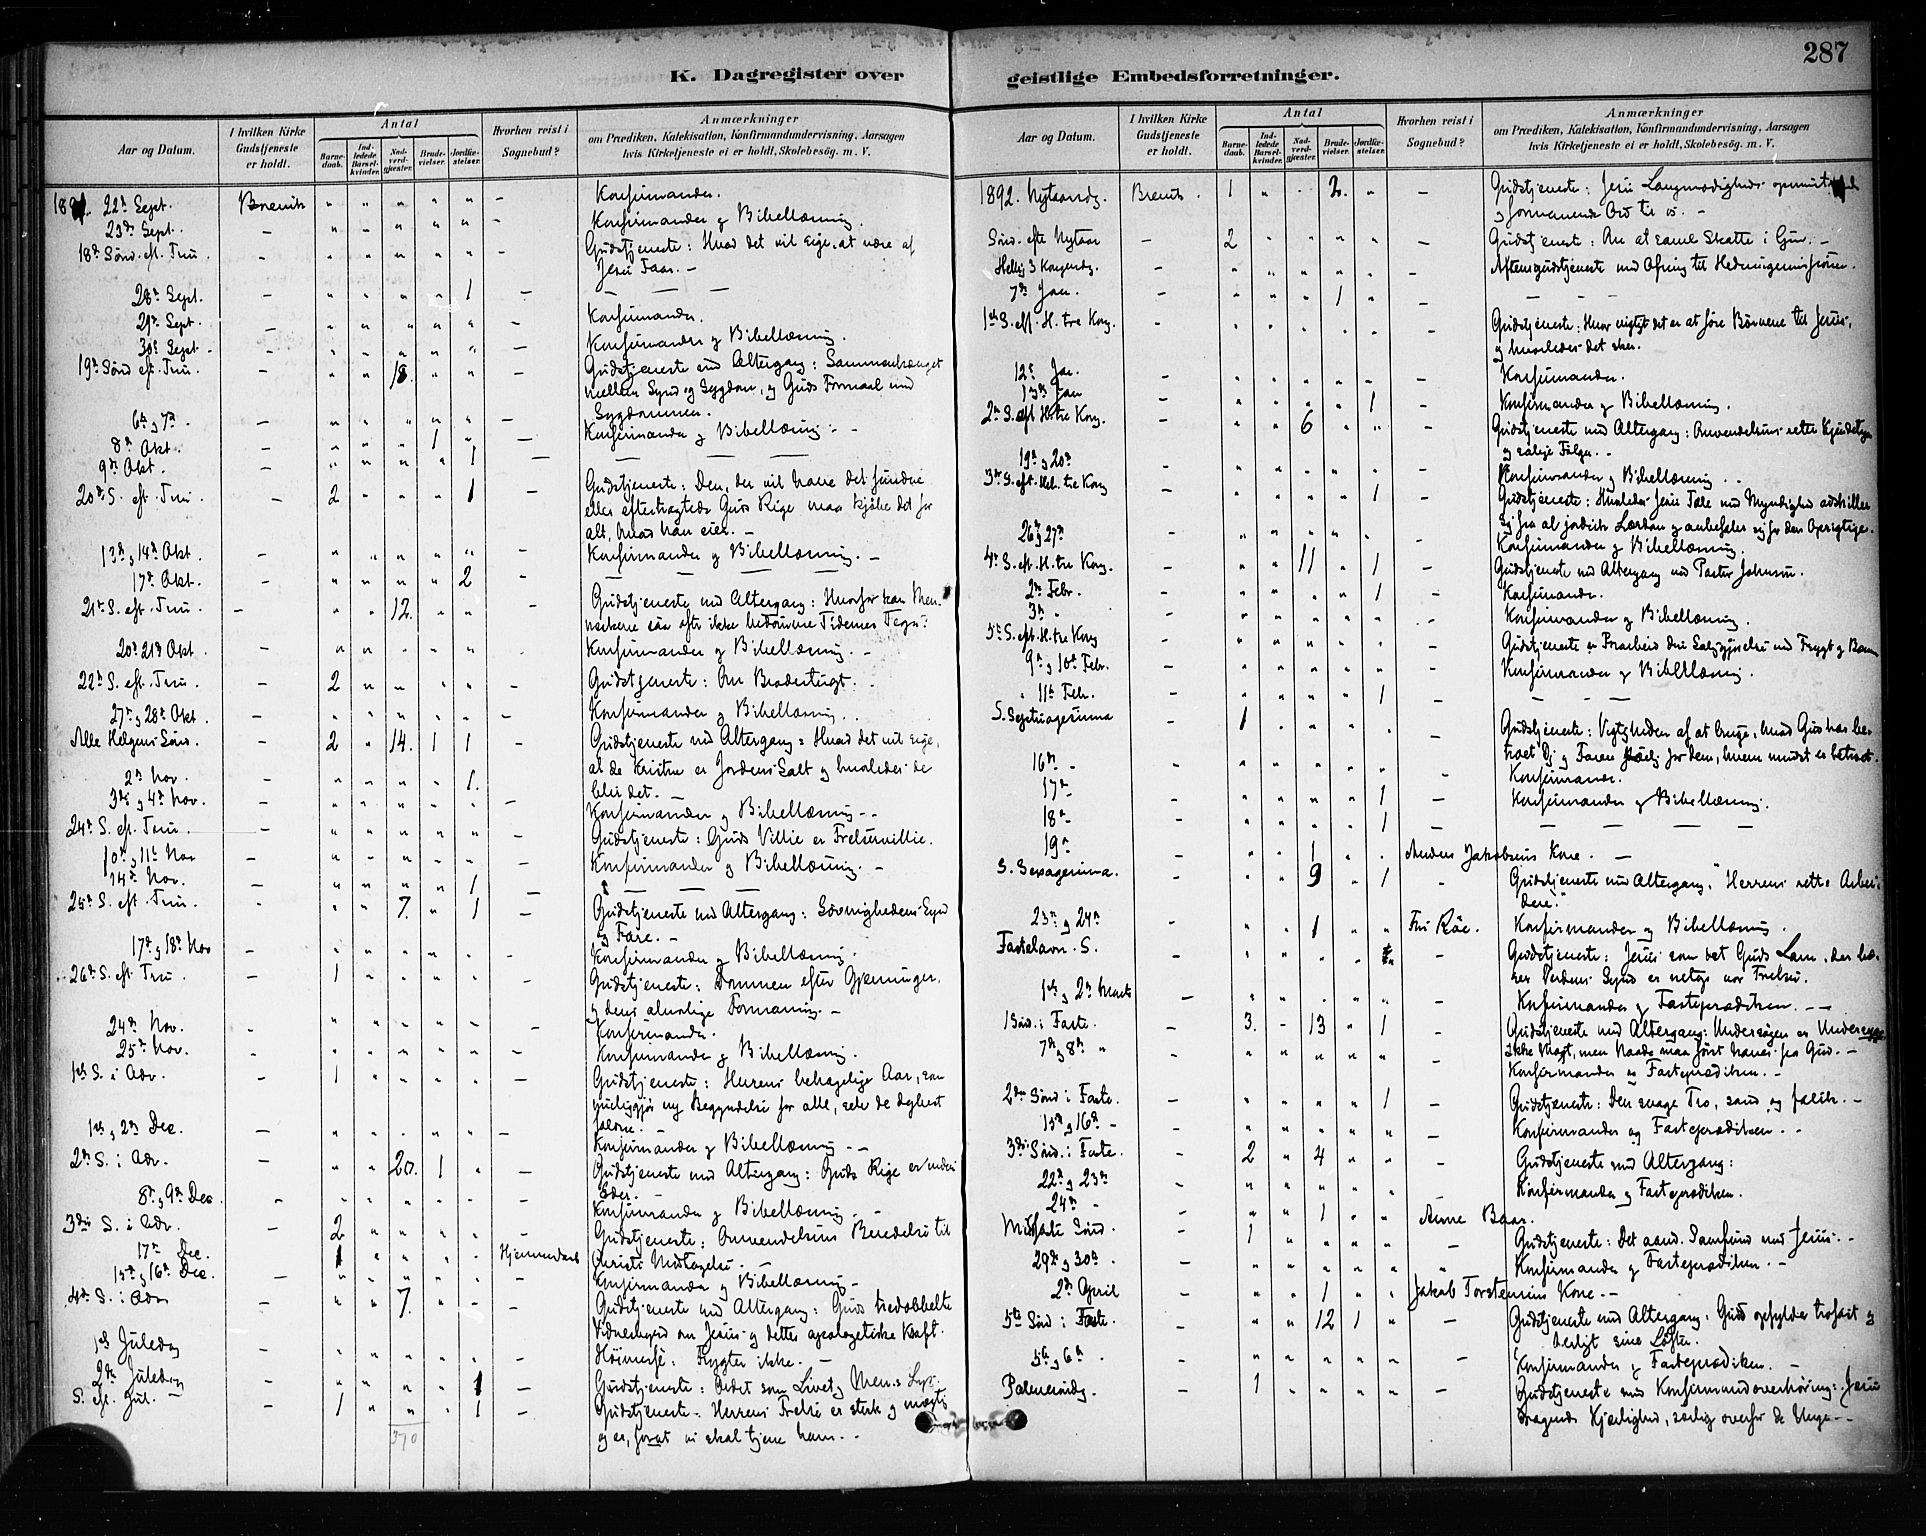 287
K. Dagregister over geistlige Embedsforretninger.
Aar og Datum.
I hvilken Kirke Gudstjeneste er holdt.
Antal
Barnedaab.
Indledede Barselkvinder.
Nadverdgjester.
Brudevielser.
Jordfæstelser.
Hvorhen reist i Sognebud?
Anmærkninger
om Prædiken, Katekisation, Konfirmandundervisning, Aarsagen
hvis Kirketjeneste ei er holdt, Skolebesøg. m. V.
22de Sept. Brevik Konfirmander.
23de Sept. Konfirmander og Bibellæsning.
18de Sønd. eft. Trin. Gudstjeneste: Hvad det vil sige, at være af
Jesu Faar. —
28de Sept. 1
29de Sept. Konfirmander.
30te Sept. Konfirmander og Bibellæsning.
19de Sønd eft. Trin. 18. Gudstjeneste med Altergang: Sammenhænget
mellem Synd og Sygdom, og Guds Formaal med
Sygdommen.
6te og 7de. Konfirmander og Bibellæsning. —
8de Okt. 1
9de Okt. 1
20de S. eft. Trin. 2 1 Gudstjeneste: Den, der vil have det fundne
eller eftertragtede Guds Rige maa kjøbe det for
alt, hvad han eier. —
13de og 14de Okt. Konfirmander og Bibellæsning. —
17de Okt. 2
21de S. eft. Trin. 12. Gudstjeneste med Altergang: Hvorfor kan Men-
neskene saa ofte ikke bedømme Tidernes Tegn?
20de 21de Okt. Konfirmander og Bibellæsning. —
22de S. eft. Trin. 2 Gudstjeneste: Om Brodertugt.
27de og 28de Okt. Konfirmander og Bibellæsning.
Alle Helgens Sønd. 2 14. 1 1 Gudstjeneste med Altergang: Hvad det vil sige,
at de Kristne er Jordens Salt og hvorledes de
blir det. —
2den Nov. 1.
3die og 4de Nov. Konfirmander og Bibellæsning. —
24de S. eft. Trin. Gudstjeneste: Guds Villie er Frelsesvillie.
10de og 11te Nov Konfirmander og Bibellæsning. —
14de Nov. 1
25de S. eft. Trin. 7. 1 Gudstjeneste med Altergang: Søvnighedens Synd
og Fare. —
17de og 18de Nov Konfirmander og Bibellæsning.
26de S. eft. Trin. 1 Gudstjeneste: Dommen efter Gjerninger,
og dens alvorlige Formaning. —
24de Nov. Konfirmander.
25de Nov. Konfirmander og Bibellæsning.
1ste S. i Adv. 1 Gudstjeneste: Herrens behagelige Aar, som
muliggjør ny Begyndelse for alle, selv de dybest
faldne. —
1ste og 2den Dec. Konfirmander og Bibellæsning —
2den S. i Adv. 20. 1 Gudstjeneste med Altergang: Guds Rige er inden i
Eder. —
8de og 9de Dec Konfirmander og Bibellæsning.
3die S. i Adv. 2 Gudstjeneste: Omvendelsens Beredelse til
Christi Modtagelse. —
17de Dec. 1 Hjemmedaab
15de og 16de Dec. Konfirmander og Bibellæsning —
4de S. i Adv 7. Gudstjeneste med Altergang: Guds tredobbelte
Vidnesbyrd om Jesus og dettes apologetiske Kraft.
1ste Juledag Høimesse: Frygter ikke. —
2den Juledag 1 Gudstjeneste: Ordet som Livet og Men.s Lys.
S. eft. Jul. 1 1 Gudstjeneste. Herrens Frelse er sterk og mægtig
og er, forat vi skal tjene ham. —
370
Aar og Datum.
I hvilken Kirke Gudstjeneste er holdt.
Antal
Barnedaab.
Indledede Barselkvinder.
Nadverdgjester.
Brudevielser.
Jordfæstelser.
Hvorhen reist i Sognebud?
Anmærkninger
om Prædiken, Katekisation, Konfirmandundervisning, Aarsagen
hvis Kirketjeneste ei er holdt, Skolebesøg. m. V.
1892. Nytaarsdg. Brevik. 1 2. Gudstjeneste: Jesu Langmodigheds
og formanende Ord til os. —
Sønd. efter Nytaar 2 Gudstjeneste: Om at samle Skatte i Gud. —
Hellig 3 Kongersdg. Aftensgudstjeneste med Ofring til Hedningemissionen.
7de Jan. 1
1ste S. eft. H. tre Kong. Gudstjeneste: Hvor vigtigt det er at føre Børnene til Jesus,
og hvorledes det sker.
12te Jan. Konfirmander.
13de Jan 1 Konfirmander og Bibellæsning.
2den S. eft H. tre Kong. 6 Gudstjeneste med Altergang: Omvendelsens rette Kjendetegn
og salige Følger. —
19de og 20de Konfirmander og Bibellæsning. —
3die S. eft. Hel. tre Kong 1 Gudstjeneste: Hvorledes Jesu Tale med Myndighed adskiller
sig fra al jordisk Lærdom og anbefaler sig for den Oprigtige.
26de og 27de Konfirmander og Bibellæsning.
4de S. eft. H. tre Kong. 11 1 Gudstjeneste med Altergang ved Pastor Johnson.
2den Febr. 1 Konfirmander.
3die " Konfirmander og Bibellæsning.
5te S. eft. H. tre Kong Gudstjeneste
9de og 10de Febr. Konfirmander og Bibellæsning.
11te Febr. 1
S. Septuagesima 1 Gudstjeneste: Vigtigheden af at bruge, hvad Gud har be-
troet Dig og Faren særlig for dem, hvem mindst er betroet.
16de — Konfirmander.
17de 1 Konfirmander og Bibellæsning.
18de — 1
19de 1 Anders Jakobsens Kone. —
S. Sexagesima. 9 1 Gudstjeneste med Altergang. "Herrens rette Arbei-
dere."
23de og 24de 1 Konfirmander og Bibellæsning.
Fastelavn. S. Gudstjeneste: Jesus som det Guds Lam, der bæ-
rer Verdens Synd er netop vor Frelser.
1ste og 2den Marts Konfirmander og Fasteprædiken. —
1 Sønd. i Faste. 3. 13 1 Gudstjeneste med Altergang:
ikke Magt, men Naade maa først haves fra Gud. —
7de og 8de " Konfirmander og Fasteprædiken. —
2den Sønd i Faste. 1 Gudstjeneste: Den svage Tro, sand og falsk. —
15de og 16de — Konfirmander og Fasteprædiken. —
3die Sønd. i Faste. 2 4 Gudstjeneste med Altergang:
22de og 23de Konfirmander og Fasteprædiken.
24de — 1 Anne Baas.
Midfaste Sønd. 1 Gudstjeneste: Det aand. Samfund med Jesus. —
29de og 30te Konfirmander og Fasteprædiken. —
2den April 1 Jakob Torstensens Kone. —
5te Sønd i Faste. 12 1 Gudstjeneste med Altergang: Gud opfylder trofast og
deiligt sine Løfter.
5te og 6te Konfirmander og Fasteprædiken. —
Palmesøndg. 1 Gudstjeneste med Konfirmandoverhøring: Jesu
dragende Kjærlighed, særlig overfor de Unge —